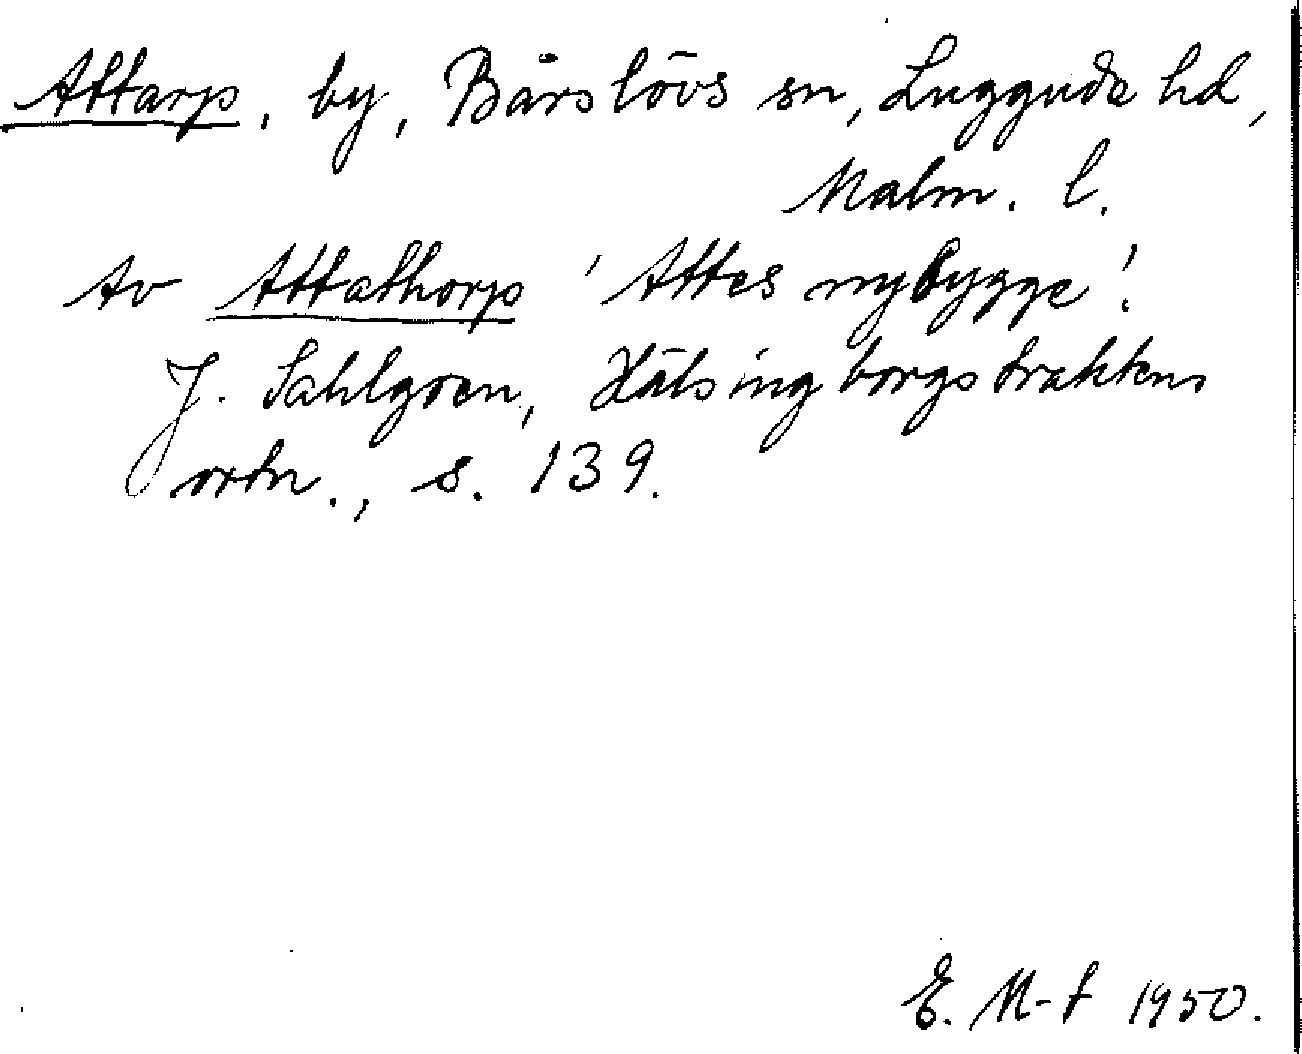 Attarp, by, Bårslövs sn, Luggude hd,
Malm. l.
Av Attathorp 'Attes nybygge'.
J. Sahlgren, Hälsingborgstraktens
ortn., s. 139.
E. M-t 1950.